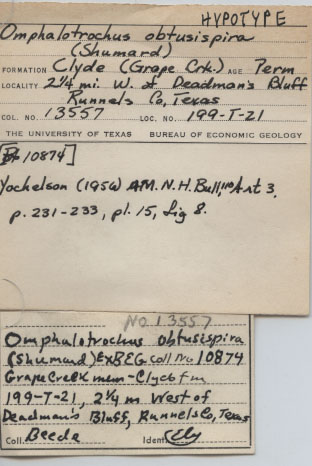 HYPOTYPE
Omphalotrochus obtusispira
(Shumard)
FORMATION Clyde (Grape Crk.) AGE Perm
LOCALITY 2 1/4 mi. W. of Deadman's Bluff
Runnels Co, Texas
COL. NO. 13557 LOC. NO. 199-T-21
THE UNIVERSITY OF TEXAS BUREAU OF ECONOMIC GEOLOGY
10874]
Yochelson (1956) A.M.N.H. Bull, 110 Art 3,
p. 231-233, pl. 15, fig 8.
No 13557
Omphalotrochus obtusispira
(Shumard) Ex BEG Coll No 10874
Grape Creek mem - Clyde fm
199-T-21, 2 1/4 m West of
Deadman's Bluff, Runnels Co, Texas
Coll. Beede Ident.